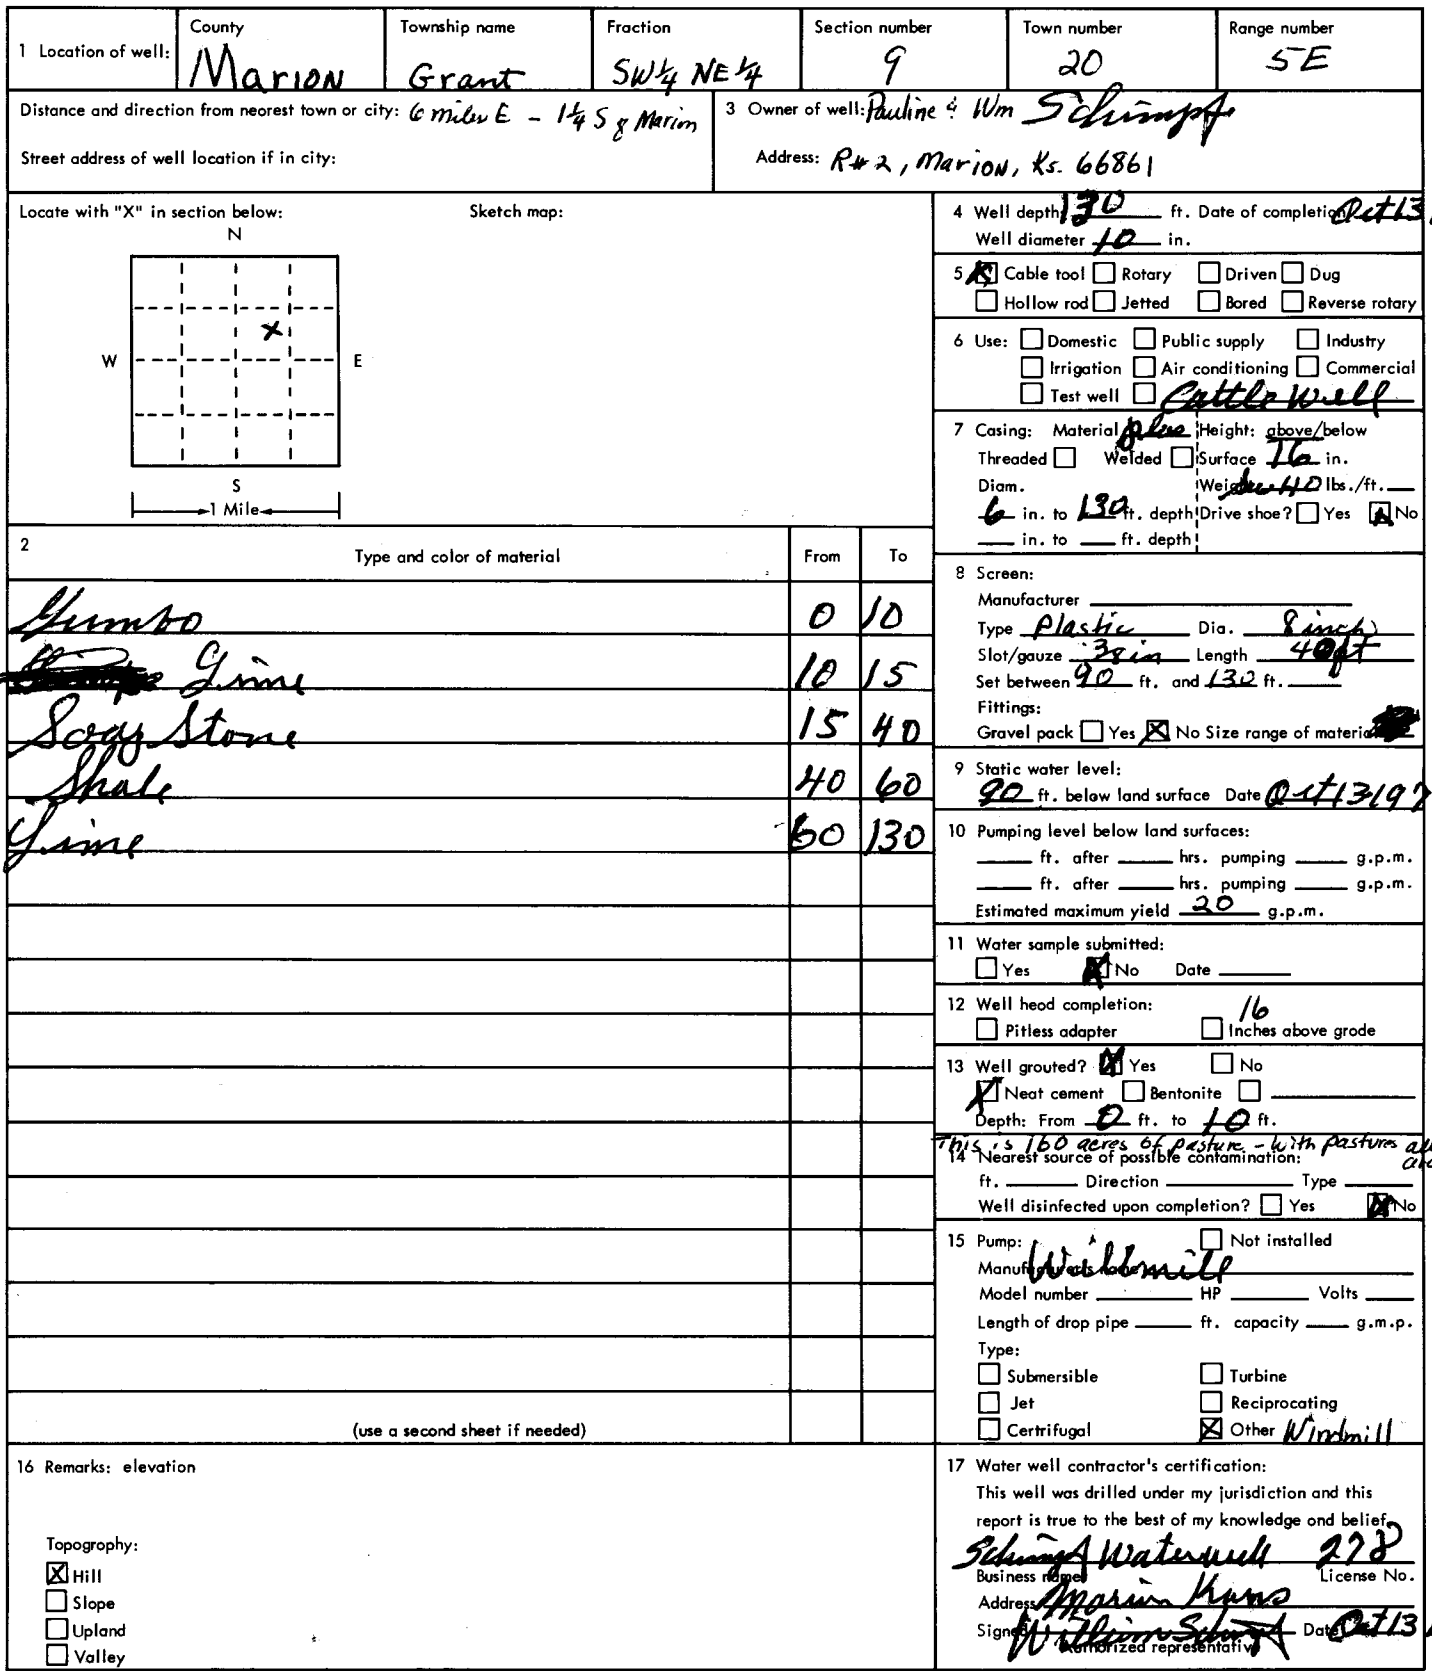 1 Location of well: County Township name Fraction Section number Town number Range number
Marion Grant SW¼ NE¼ 9 20 5E
Distance and direction from nearest town or city: 6 miles E - 1¼ S of Marion
Street address of well location if in city:
3 Owner of well: Pauline & Wm Schimpf
Address: R#2, Marion, Ks. 66861
Locate with "X" in section below: Sketch map:
N
X
W E
S
1 Mile
2 Type and color of material From To
Gumbo 0 10
Lime 10 15
Soap Stone 15 40
Shale 40 60
Lime 60 130
(use a second sheet if needed)
4 Well depth 130 ft. Date of completion Oct 13
Well diameter 10 in.
5 Cable tool Rotary Driven Dug
Hollow rod Jetted Bored Reverse rotary
6 Use: Domestic Public supply Industry
Irrigation Air conditioning Commercial
Test well Cattle Well
7 Casing: Material plas Height: above/below
Threaded Welded Surface 16 in.
Diam. 40 lbs./ft.
6 in. to 130 ft. depth Drive shoe? Yes No
in. to ft. depth
8 Screen:
Manufacturer
Type Plastic Dia. 8 inch
Slot/gauze Length 40ft
Set between 90 ft. and 130 ft.
Fittings:
Gravel pack Yes No Size range of material
9 Static water level:
90 ft. below land surface Date Oct 13 197
10 Pumping level below land surfaces:
ft. after hrs. pumping g.p.m.
ft. after hrs. pumping g.p.m.
Estimated maximum yield 20 g.p.m.
11 Water sample submitted:
Yes No Date
12 Well head completion:
Pitless adapter 16 Inches above grade
13 Well grouted? Yes No
Neat cement Bentonite
Depth: From 0 ft. to 10 ft.
This is 160 acres of pasture - with pastures all
14 Nearest source of possible contamination:
ft. Direction Type
Well disinfected upon completion? Yes No
15 Pump: Not installed
Manufacturer's name Willmill
Model number HP Volts
Length of drop pipe ft. capacity g.m.p.
Type:
Submersible Turbine
Jet Reciprocating
Certrifugal Other Windmill
16 Remarks: elevation
Topography:
Hill
Slope
Upland
Valley
17 Water well contractor's certification:
This well was drilled under my jurisdiction and this
report is true to the best of my knowledge and belief.
Schimpf Waterwell 278
Business name License No.
Address Marion Kans
Signed William Schimpf Date Oct 13
Authorized representative